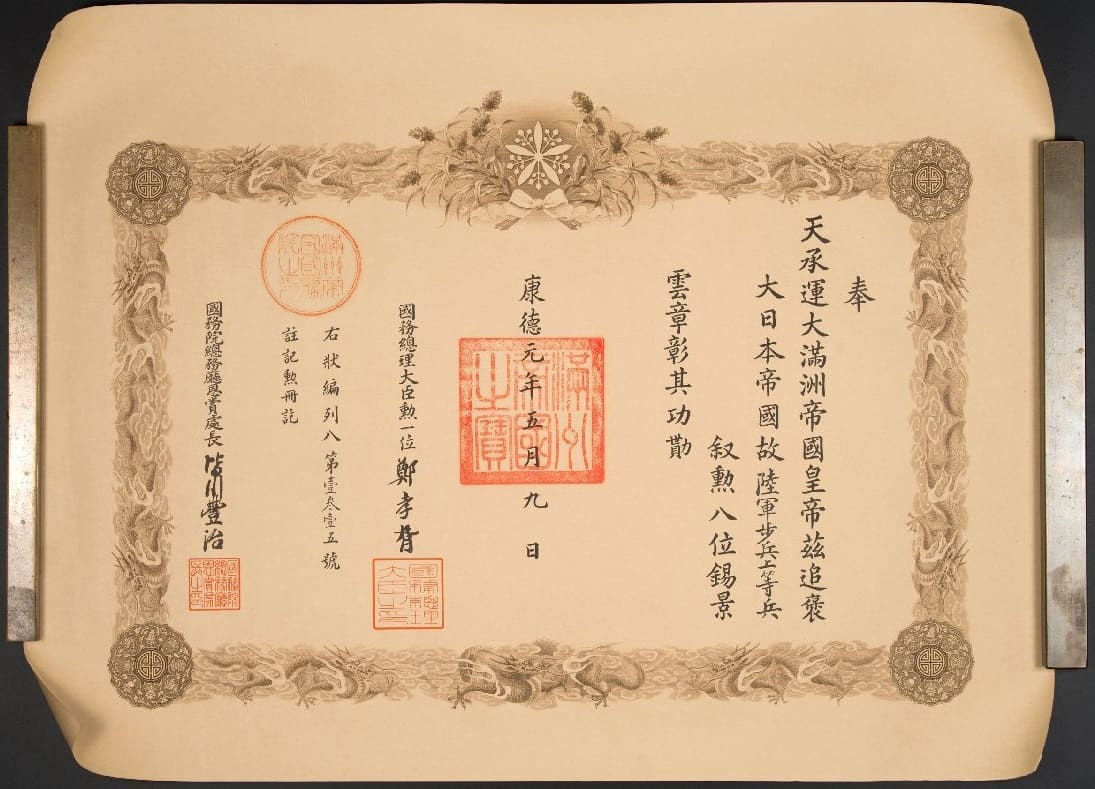 奉
天承運大滿洲帝國皇帝茲追褒
大日本帝國故陸軍步兵上等兵
叙勲八位錫景
雲章彰其功勛
康德元年五月九日
滿洲帝國之寶
國務總理大臣勲一位鄭孝胥
國務總理大臣之印
右狀編列八第壹叄壹五號
註記勲冊訖
滿洲國國務院之印
國務院總務廳恩賞處長皆川豐治